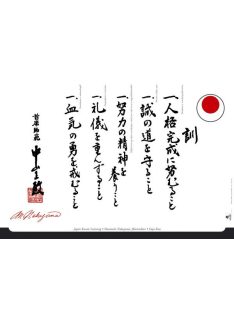 訓
一、人格完成に努むること
一、誠の道を守ること
一、努力の精神を養うこと
一、礼儀を重んずること
一、血気の勇を戒むること
首席師範
中山正敏
M. Nakayama